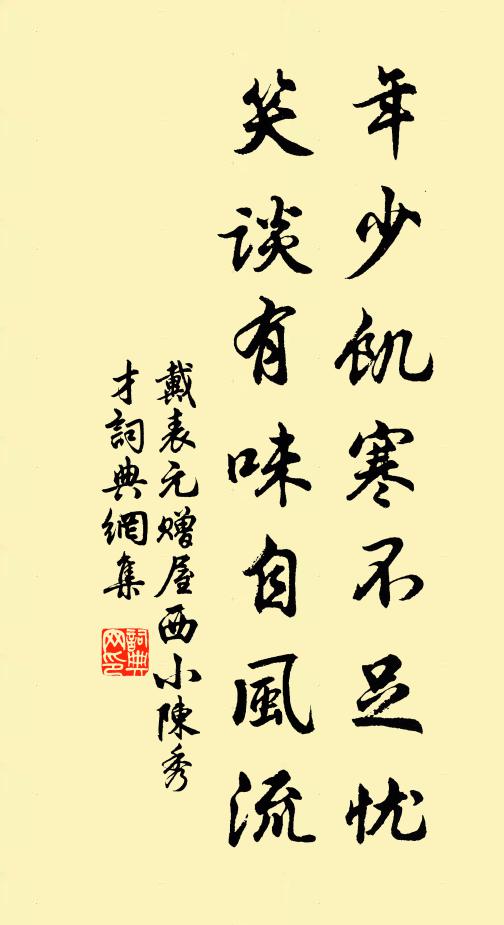 年少飢寒不足忧
笑談有味自風流
戴表元赠屋西小陳秀
才詞典網集
詞典
网印